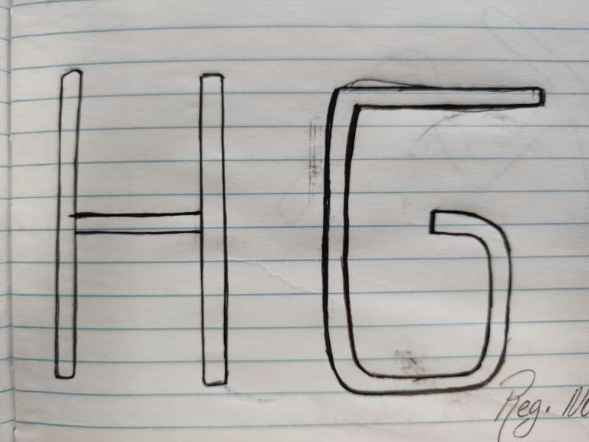 HG
Reg.